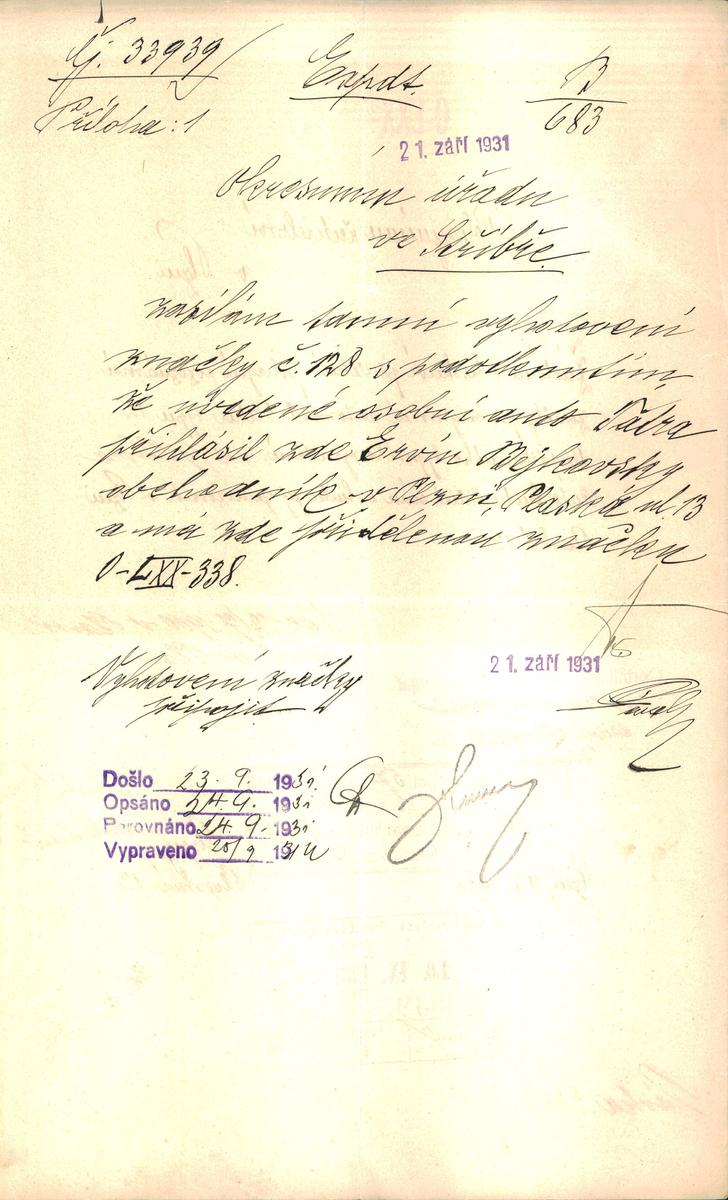 Čj. 33939/
Expdt.
B
683
Příloha: 1
21. září 1931
Okresnímu úřadu
ve Stříbře.
zasílám tamní vyhotovení
značky č. 128 s podotknutím,
že uvedené osobní auto Tatra
přihlásil zde Ervín Wejkovský
obchodník v Plzni, Plaská ul. 13
a má zde přidělenou značku
O-LXX-338.
21. září 1931
Vyhotovení značky
připojit
Došlo 23. 9. 1931
Opsáno 24. 9. 1931
Porovnáno 24. 9. 1931
Vypraveno 25/9 1931